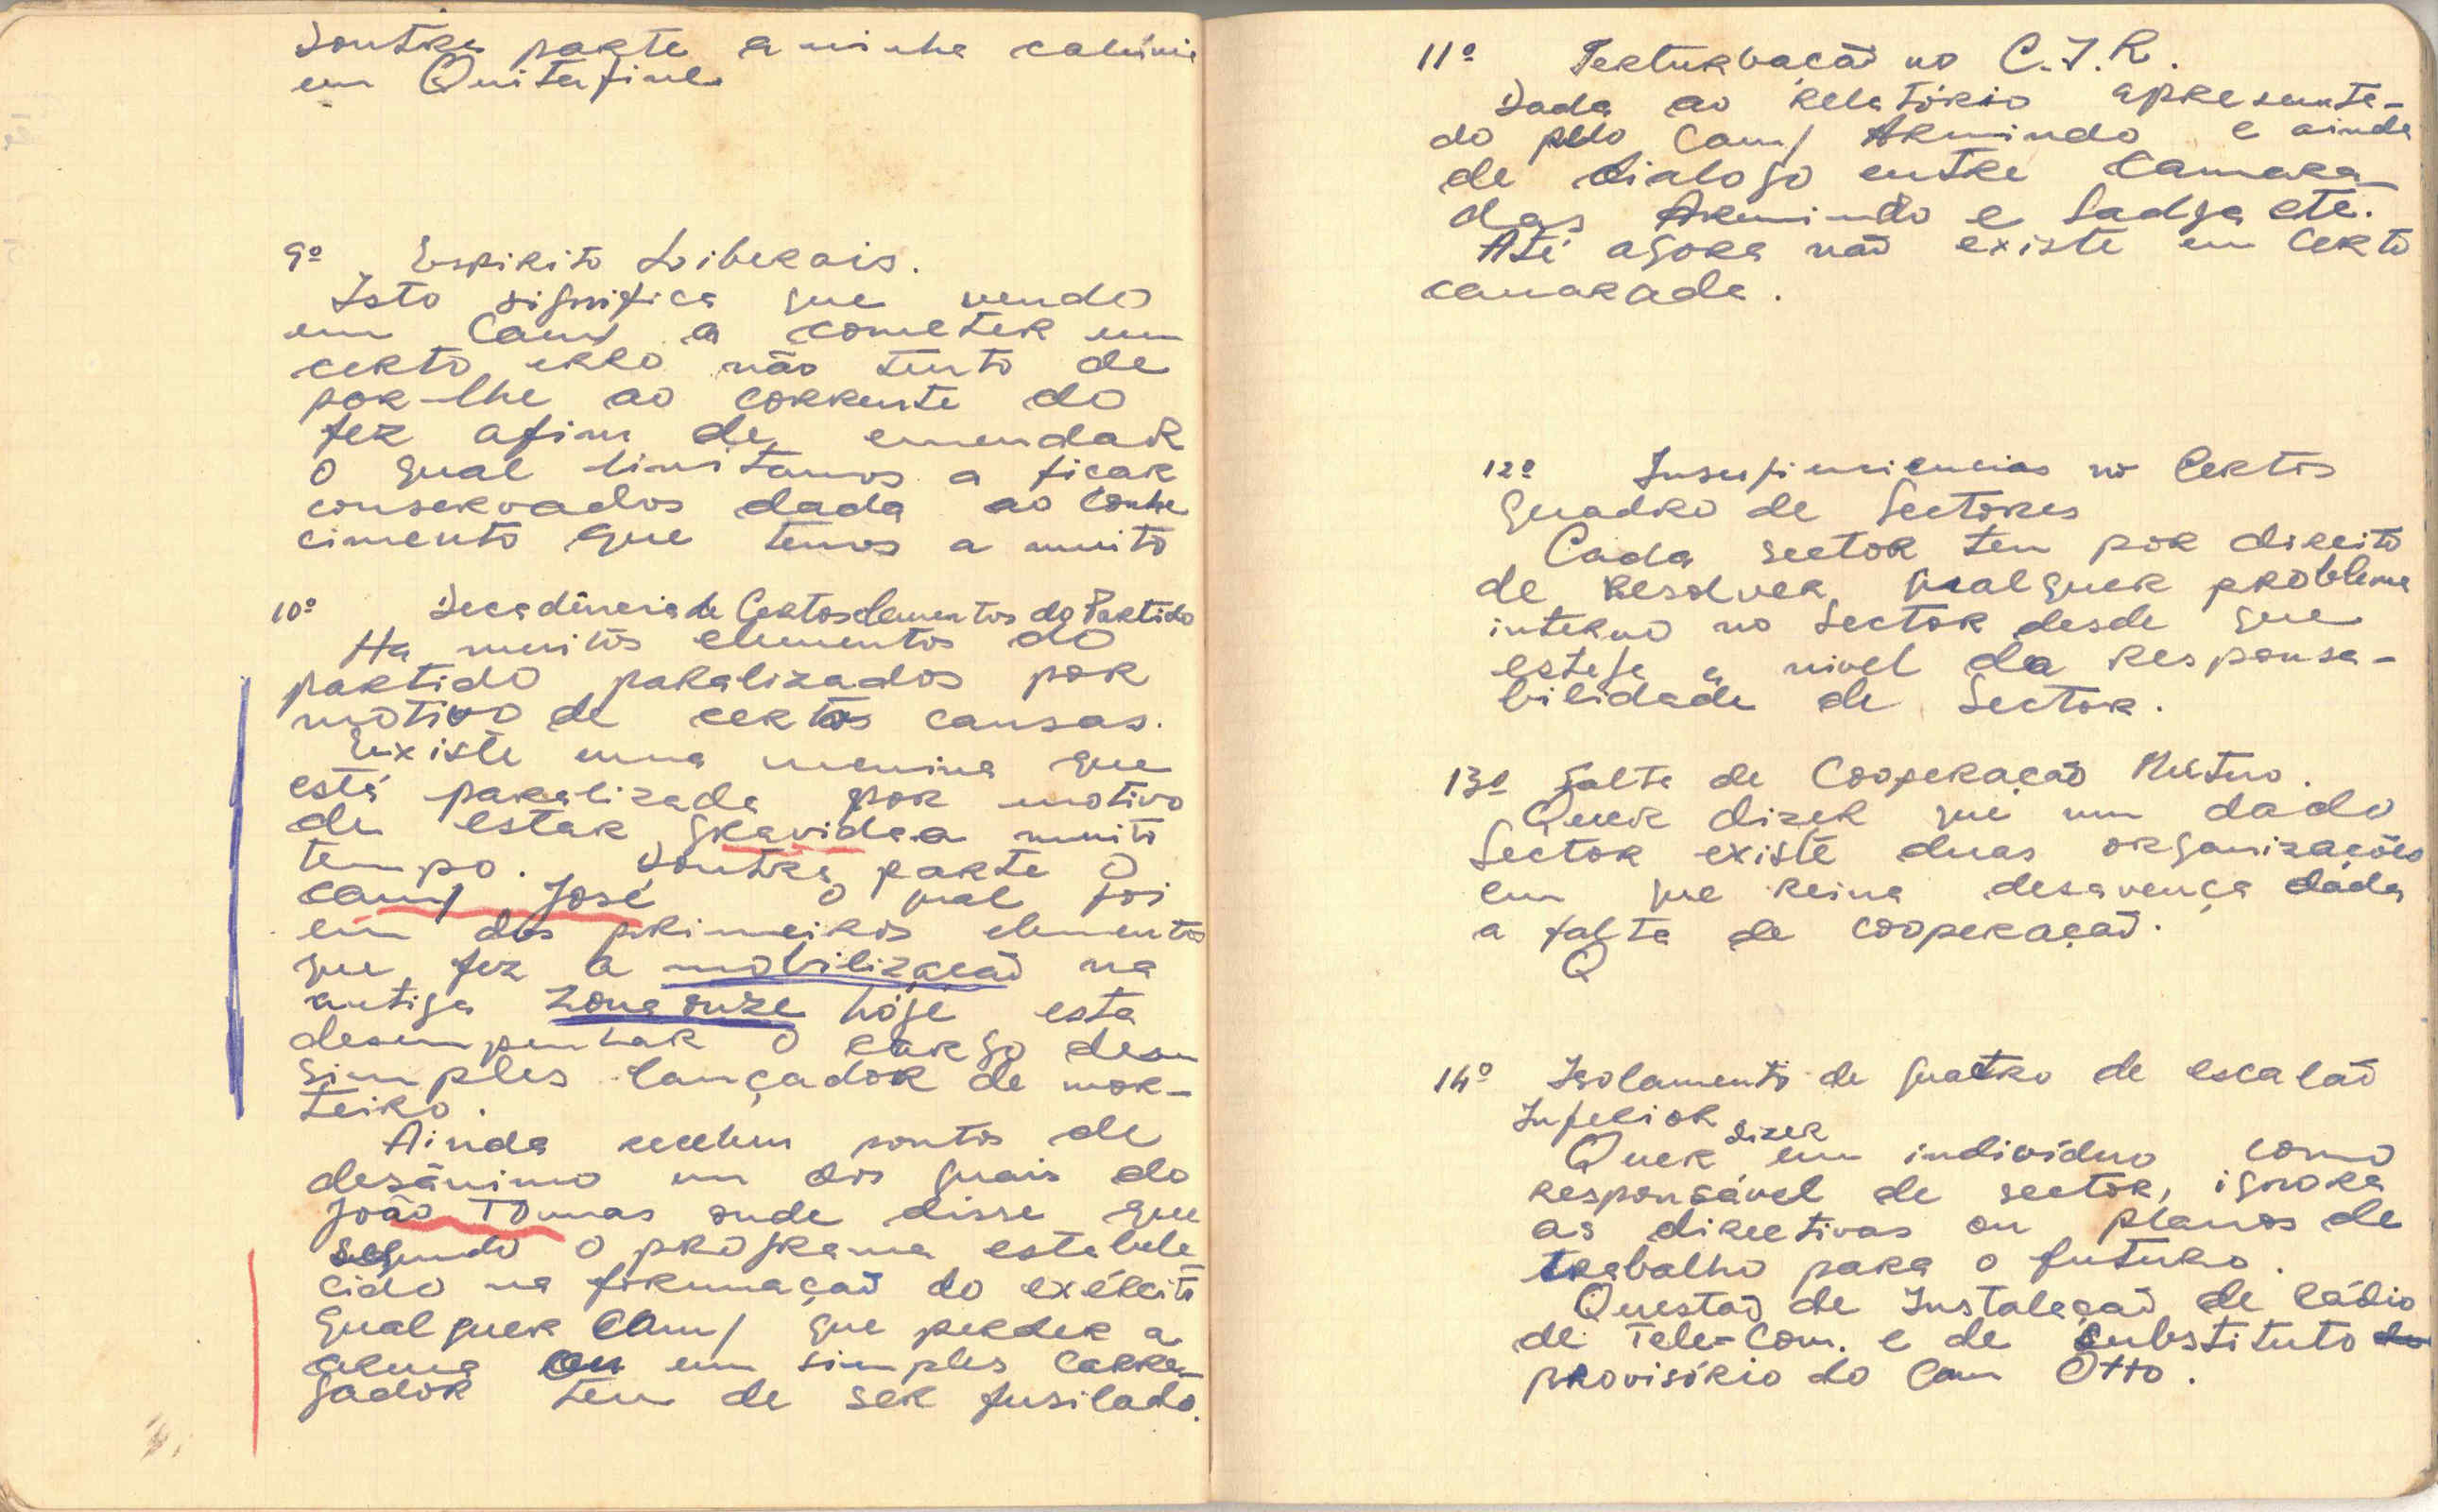 Doutra parte a minha calúnia
em Quitafine
9º Espirito Liberais.
Isto significa que vendo
um Cam/ a cometer um
certo erro não tento de
por-lhe ao corrente do
fez afim de emendar
o qual limitamos a ficar
conservados dada ao conhe
cimento que temos a muito
10º Decadência de Certos elementos do Partido
Ha muitos elementos do
partido paralizados por
motivo de certas causas.
Existe uma menina que
está paralizada por motivo
de estar gravida a muito
tempo. Doutra parte o
cam/ José o qual foi
um dos primeiros elementos
que fez a mobilização na
antiga zona onze hoje esta
desempenhar o cargo de um
simples lançador de mor-
teiro.
Ainda recebem pontos de
desânimo um dos quais do
João Tomas onde disse que
segundo o programa estabele
cido na formação do exército
qualquer Cam/ que perder a
arma ou um simples carre-
gador tem de ser fusilado.
11º Perturbação no C.I.R.
Dada ao relatório apresenta-
do pelo Cam/ Armindo e ainda
de dialogo entre Camara-
das Armindo e Sadja etc.
Até agora não existe um certo
camarada.
12º no Certos
quadro de Sectores
Cada sector tem por direito
de resolver qualquer problema
interno no Sector desde que
esteja a nivel da responsa-
bilidade de Sector.
13º Falta de Cooperação Mútuo.
Quer dizer que um dado
Sector existe duas organizações
em que reina desavença dada
a falta de cooperação.
Q
14º Isolamento de quatro de escalão
Inferior
Quer dizer um indivíduo como
responsável de sector, ignora
as directivas ou planos de
trabalho para o futuro.
Questão de Instalação de rádio
de Tele-Com. e de substituto do
provisório do Cam Otto.